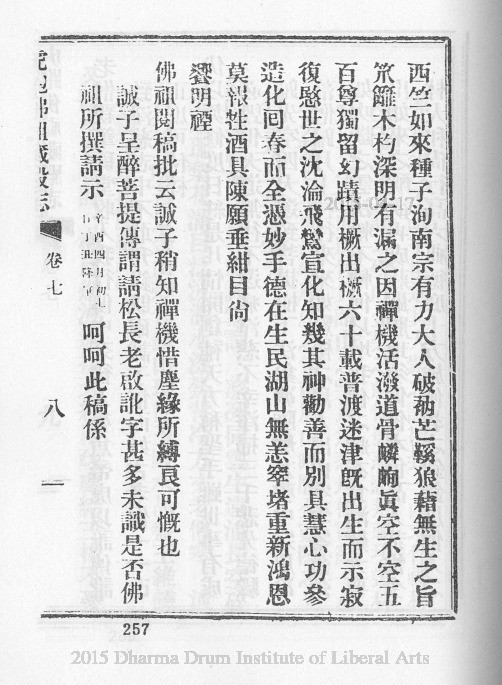 西竺如來種子洵南宗有力大人破衲芒鞵狼藉無生之旨
笊籬木杓深明有漏之因禪機活潑道骨嶙峋眞空不空五
百尊獨留幻蹟用橛出橛六十載普渡迷津旣出生而示寂
復愍世之沈淪飛鸞宣化知幾其神勸善而別具慧心功參
造化回春而全憑妙手德在生民湖山無恙窣堵重新鴻恩
莫報牲酒具陳願垂紺目尙
饗明禋
佛祖閱稿批云誠子稍知禪機惜塵緣所縛良可慨也
誠子呈醉菩提傳謂請松長老啟訛字甚多未識是否佛
祖所撰請示 辛酉四月初七日丁丑降 呵呵此稿係
卷七
八
257
2015 Dharma Drum Institute of Liberal Arts